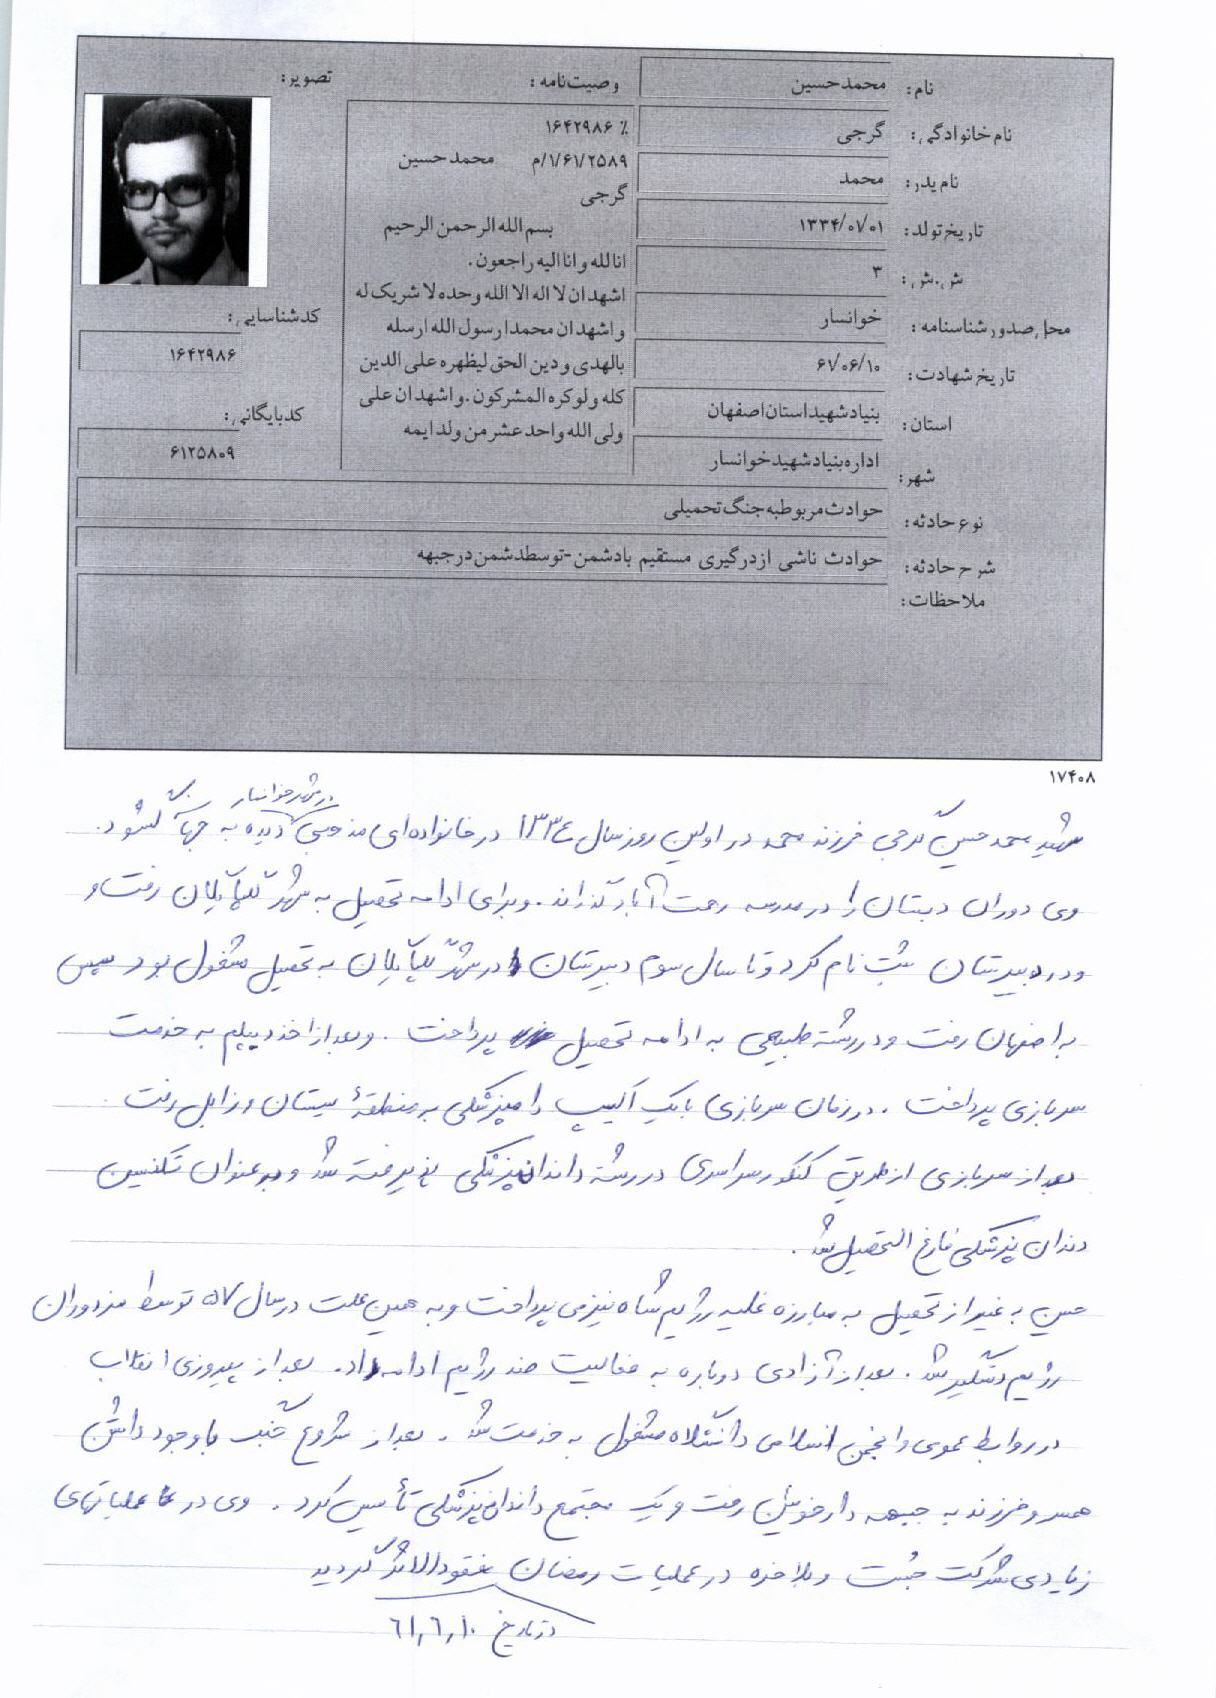 نام: محمدحسین
نام خانوادگی: گرجی
نام پدر: محمد
تاریخ تولد: ۱۳۳۴/۰۱/۰۱
ش.ش: ۳
محل صدور شناسنامه: خوانسار
تاریخ شهادت: ۶۱/۰۶/۱۰
استان: بنیاد شهید استان اصفهان
شهر: اداره بنیاد شهید خوانسار
وصیت‌نامه:
٪ ۱۶۴۲۹۸۶
۱/۶۱/۲۵۸۹/م محمدحسین
گرجی
بسم الله الرحمن الرحیم
انا لله و انا الیه راجعون.
اشهد ان لا اله الا الله وحده لا شریک له
و اشهد ان محمدا رسول الله ارسله
بالهدی و دین الحق لیظهره علی الدین
کله و لو کره المشرکون. و اشهد ان علی
ولی الله واحد عشر من ولد ایمه
تصویر:
کد شناسایی:
۱۶۴۲۹۸۶
کد بایگانی:
۶۱۲۵۸۰۹
نوع حادثه: حوادث مربوط به جنگ تحمیلی
شرح حادثه: حوادث ناشی از درگیری مستقیم بادشمن-توسط دشمن در جبهه
ملاحظات:
۱۷۴۰۸
در شهر خوانسار
شهید محمد حسین گرجی فرزند محمد در اولین روز سال ۱۳۳۴ در خانواده‌ای مذهبی دیده به جهان گشود.
وی دوران دبستان را در مدرسه رحمت آباد گذراند. و برای ادامه تحصیل به شهر گلپایگان رفت و
و در دبیرستان ثبت نام کرد و تا سال سوم دبیرستان در شهر گلپایگان به تحصیل مشغول بود سپس
به اصفهان رفت و در رشته طبیعی به ادامه تحصیل پرداخت. و بعد از اخذ دیپلم به خدمت
سربازی پرداخت. در زمان سربازی با یک اکیپ دامپزشکی به منطقهٔ سیستان و زابل رفت.
بعد از سربازی از طریق کنکور سراسری در رشته دندانپزشکی پذیرفته شد و به عنوان تکنسین
دندان پزشکی فارغ التحصیل شد.
حسین به غیر از تحصیل به مبارزه علیه رژیم شاه نیز می پرداخت و به همین علت در سال ۵۷ توسط مزدوران
رژیم دستگیر شد. بعد از آزادی دوباره به فعالیت ضد رژیم ادامه داد. بعد از پیروزی انقلاب
در روابط عمومی و انجمن اسلامی دانشگاه مشغول به خدمت شد. بعد از شروع جنگ با وجود داشتن
همسر و فرزند به جبهه دارخوین رفت و یک مجتمع دندانپزشکی تأسیس کرد. وی در عملیاتهای
زیادی شرکت جست و بلاخره در عملیات رمضان مفقودالاثر گردید
در تاریخ ۶۱,۶,۱۰